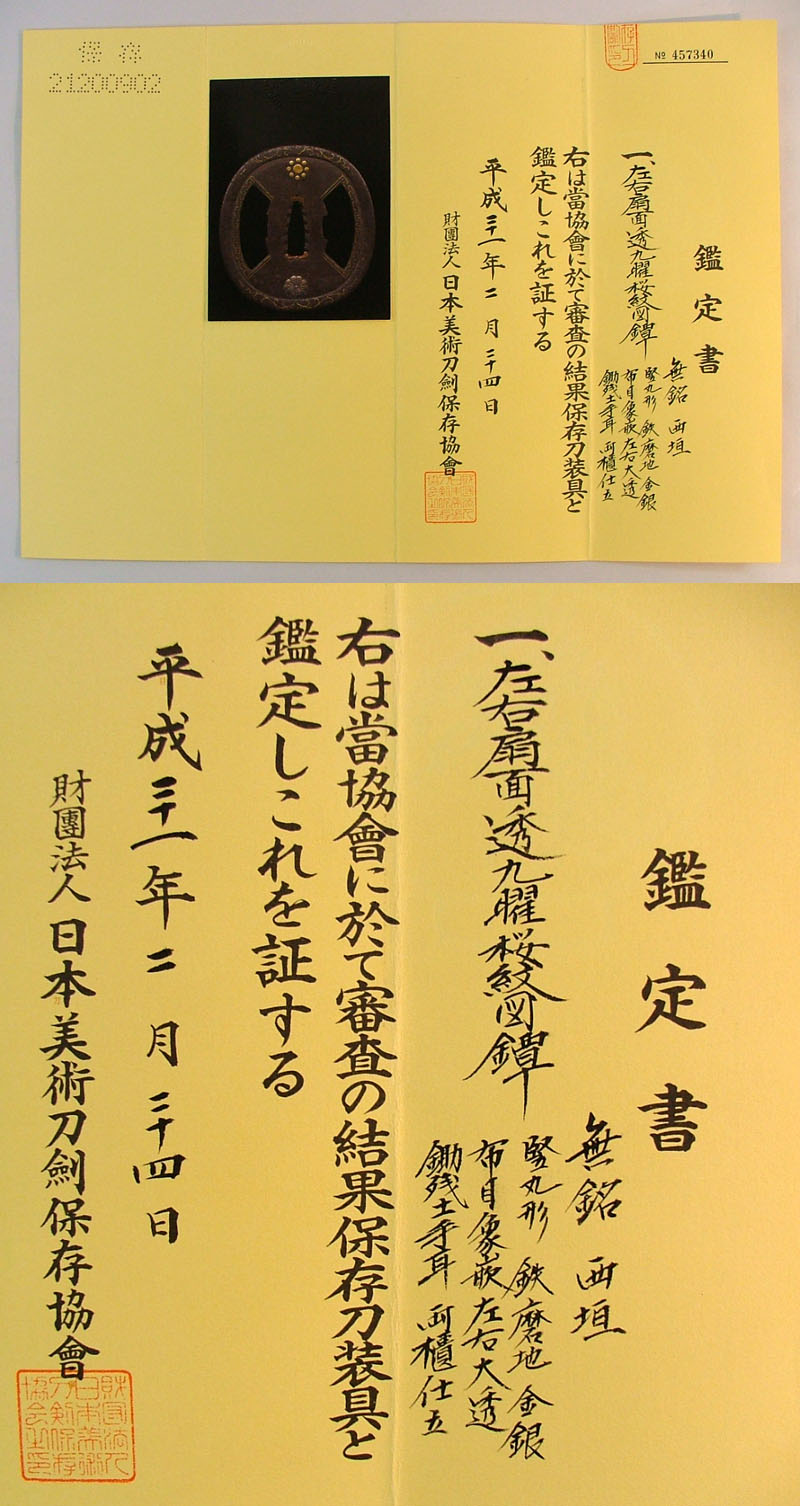 保存
21200902
№ 457340
鑑定書
無銘 西垣
一、左右扇面透九曜桜紋図鐔
竪丸形 鉄磨地 金銀
布目象嵌左右大透
鋤残土手耳 両櫃仕立
右は當協會に於て審査の結果保存刀装具と
鑑定しこれを証する
平成二十一年二月二十四日
財團法人日本美術刀劍保存協會
鑑定書
無銘 西垣
一、左右扇面透九曜桜紋図鐔
竪丸形 鉄磨地 金銀
布目象嵌左右大透
鋤残土手耳 両櫃仕立
右は當協會に於て審査の結果保存刀装具と
鑑定しこれを証する
平成二十一年二月二十四日
財團法人日本美術刀劍保存協會